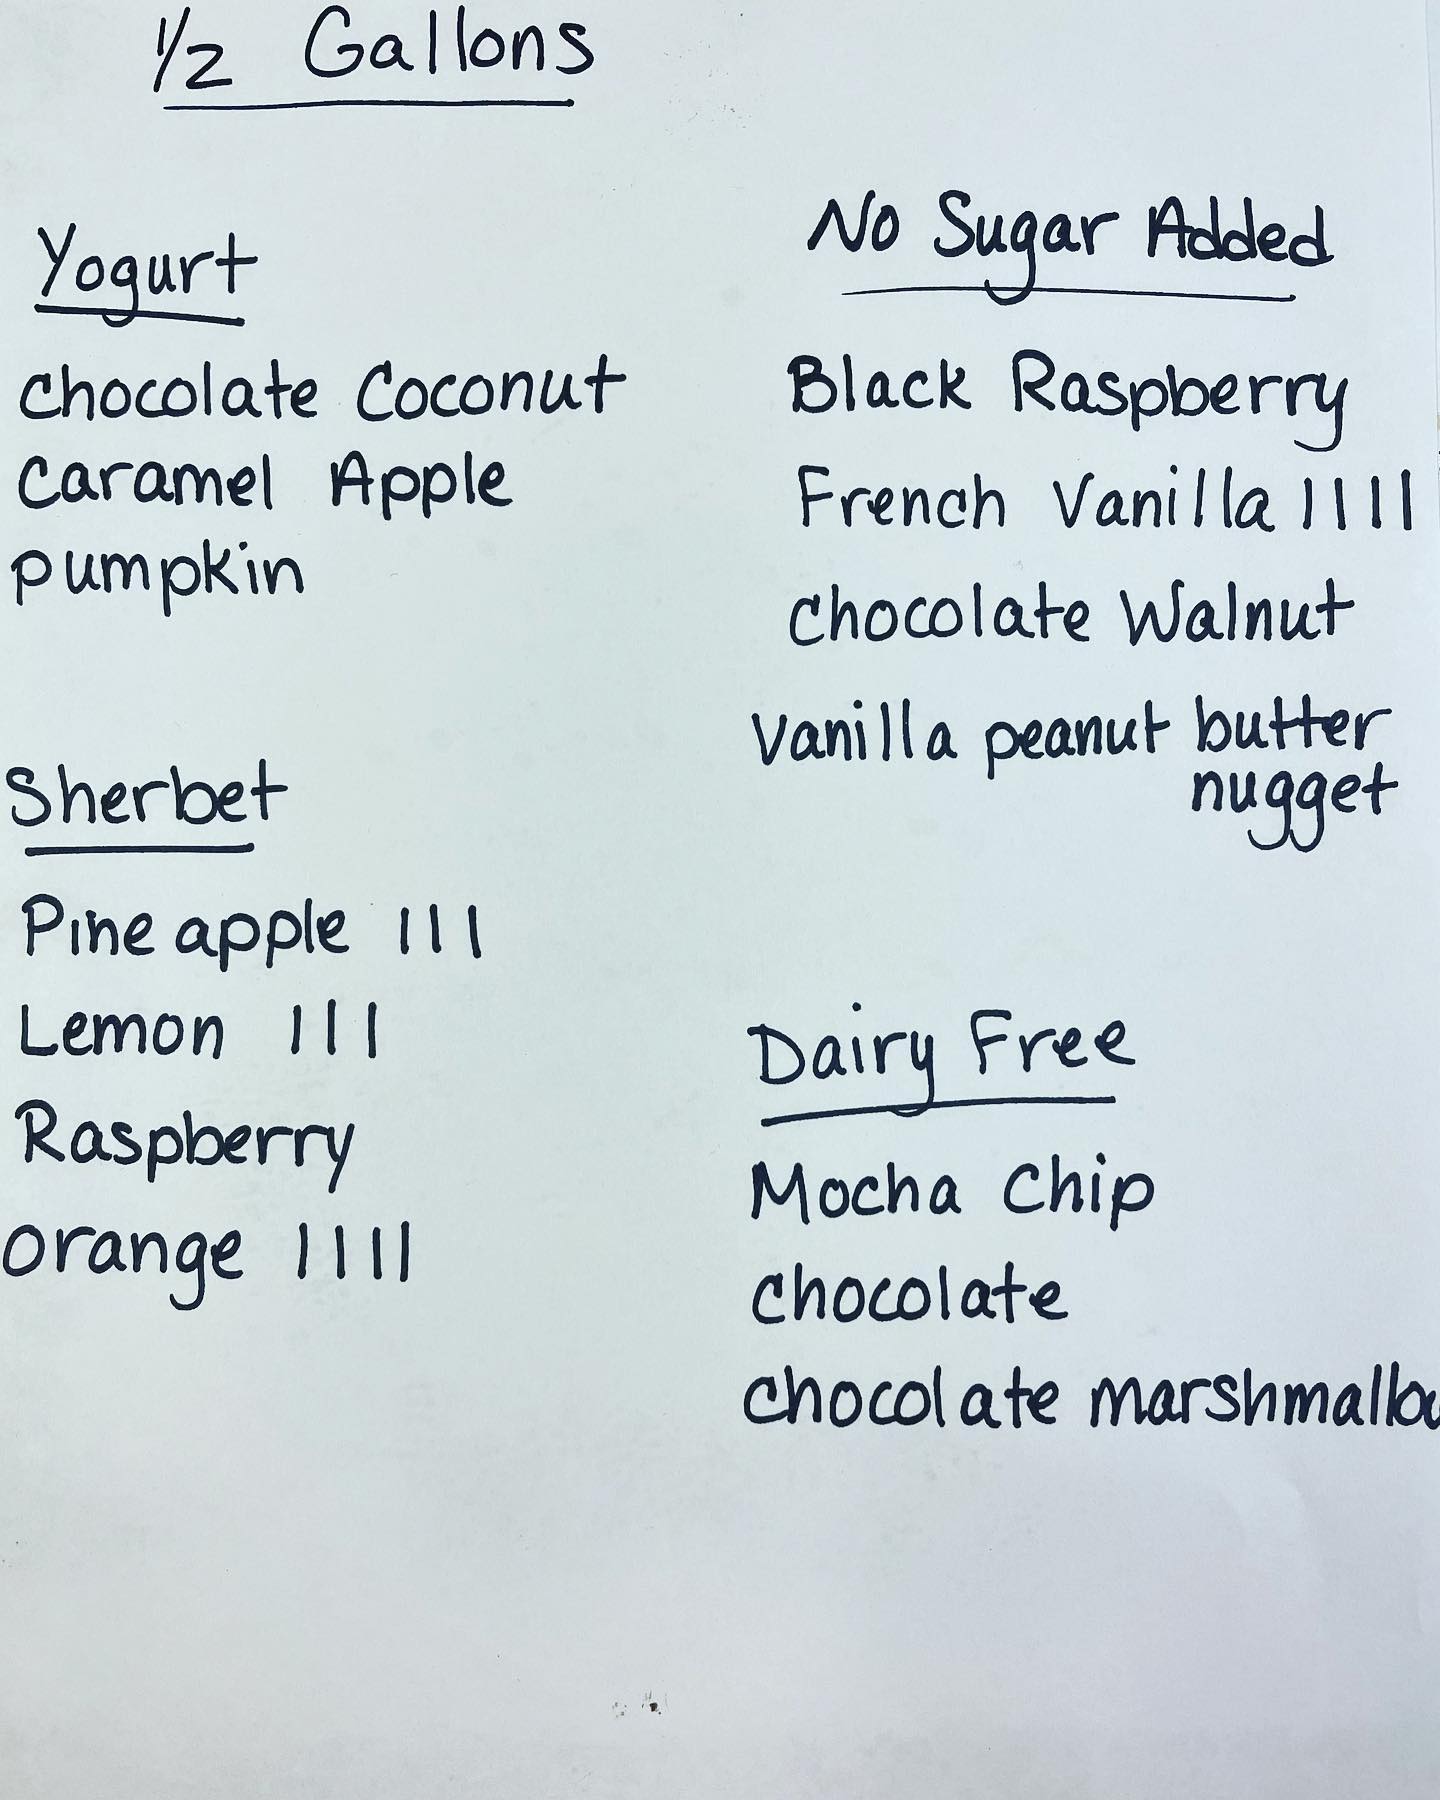 1/2 Gallons
Yogurt
chocolate Coconut
Caramel Apple
pumpkin
Sherbet
Pineapple ||||
Lemon |||
Raspberry
orange ||||
No Sugar Added
Black Raspberry
French Vanilla ||||
chocolate Walnut
Vanilla peanut butter
nugget
Dairy Free
Mocha Chip
chocolate
chocolate marshmallow